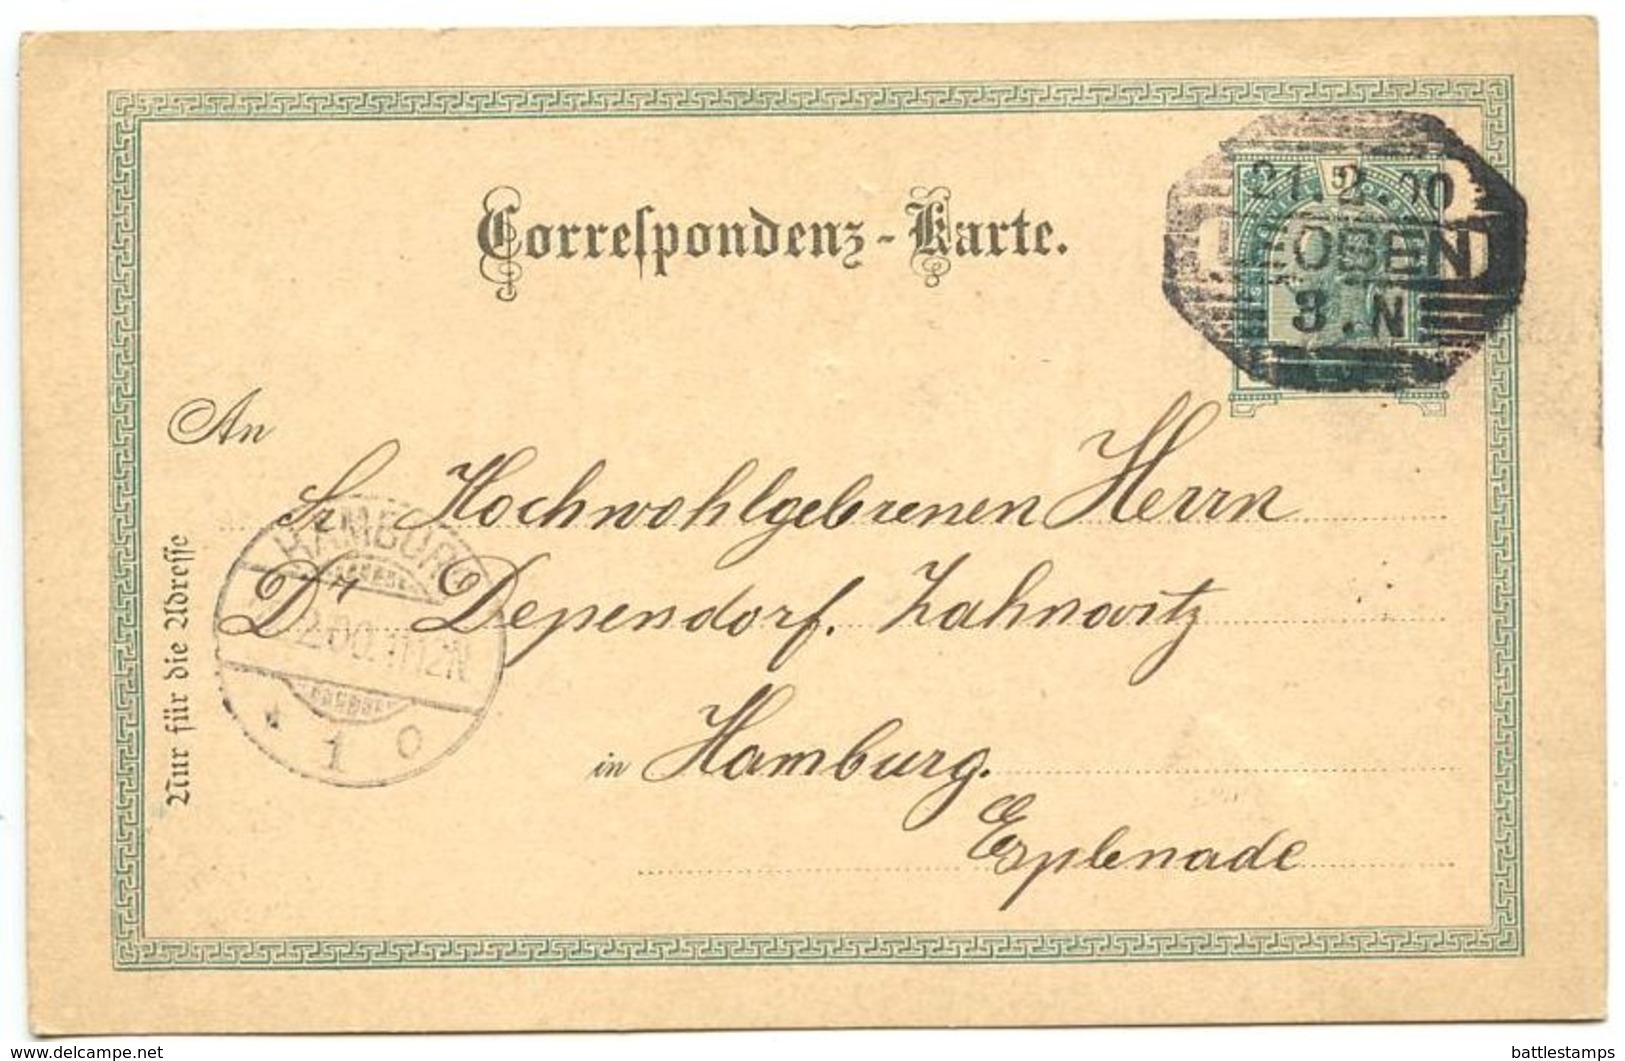 Correspondenz-Karte.
5
21.2.00
LEOBEN
3.N
An
Sr Hochwohlgeborenen Herrn
Dr Dependorf. Zahnarzt
in Hamburg.
Esplenade
Nur für die Adresse
HAMBURG
2.00.11-12N
* 1 o
www.delcampe.net
battlestamps